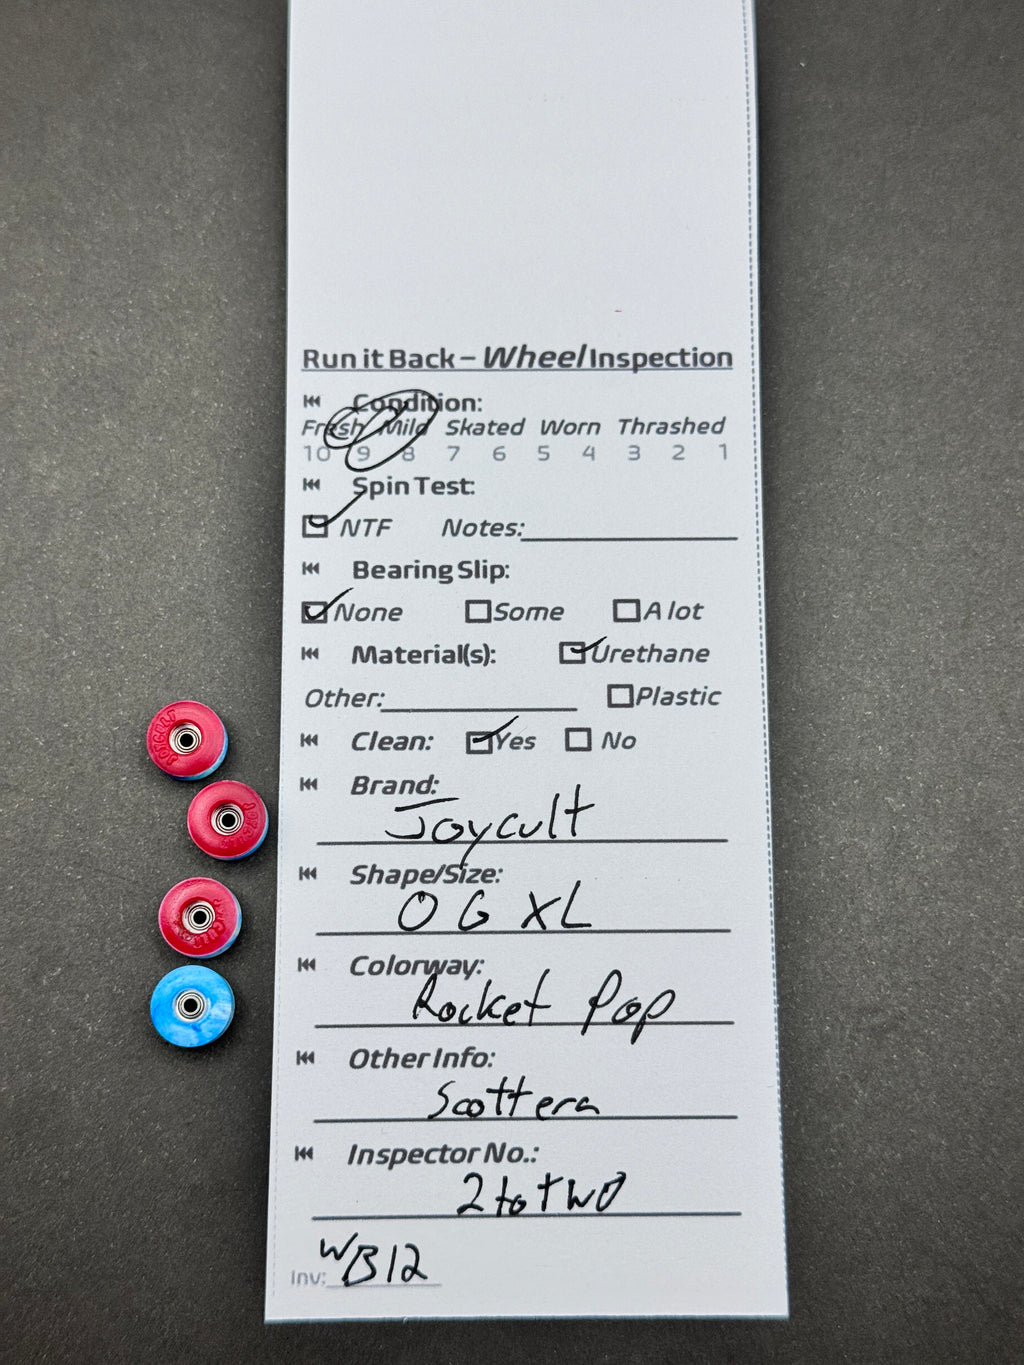 Run it Back – Wheel Inspection
Condition:
Fresh Mild Skated Worn Thrashed
10 9 8 7 6 5 4 3 2 1
Spin Test:
NTF Notes:
Bearing Slip:
None Some A lot
Material(s): Urethane
Other: Plastic
Clean: Yes No
Brand:
Joycult
Shape/Size:
OG XL
Colorway:
Rocket Pop
Other Info:
Inspector No.:
2 to two
WB12
Inv:
JOYCULT
CULT